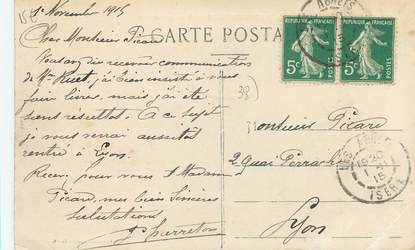 15€
1er Novembre 1915
Cher Monsieur Picard
CARTE POSTALE
Vous ai-je reçu communication
de Mr Huet, j'ai bien insisté à vous
faire livrer, mais j'ai été
sans resultat. A ce sujet
je vous verrai aussitôt
rentré à Lyon.
Recevez pour vous et Madame
Picard, mes bien sincères
salutations
38
Monsieur Picard
2 Quai Perrache
Lyon
REPUBLIQUE FRANÇAISE
5c
POSTES
REPUBLIQUE FRANÇAISE
5c
POSTES
ABRETS
LES ABRETS
15
ISERE